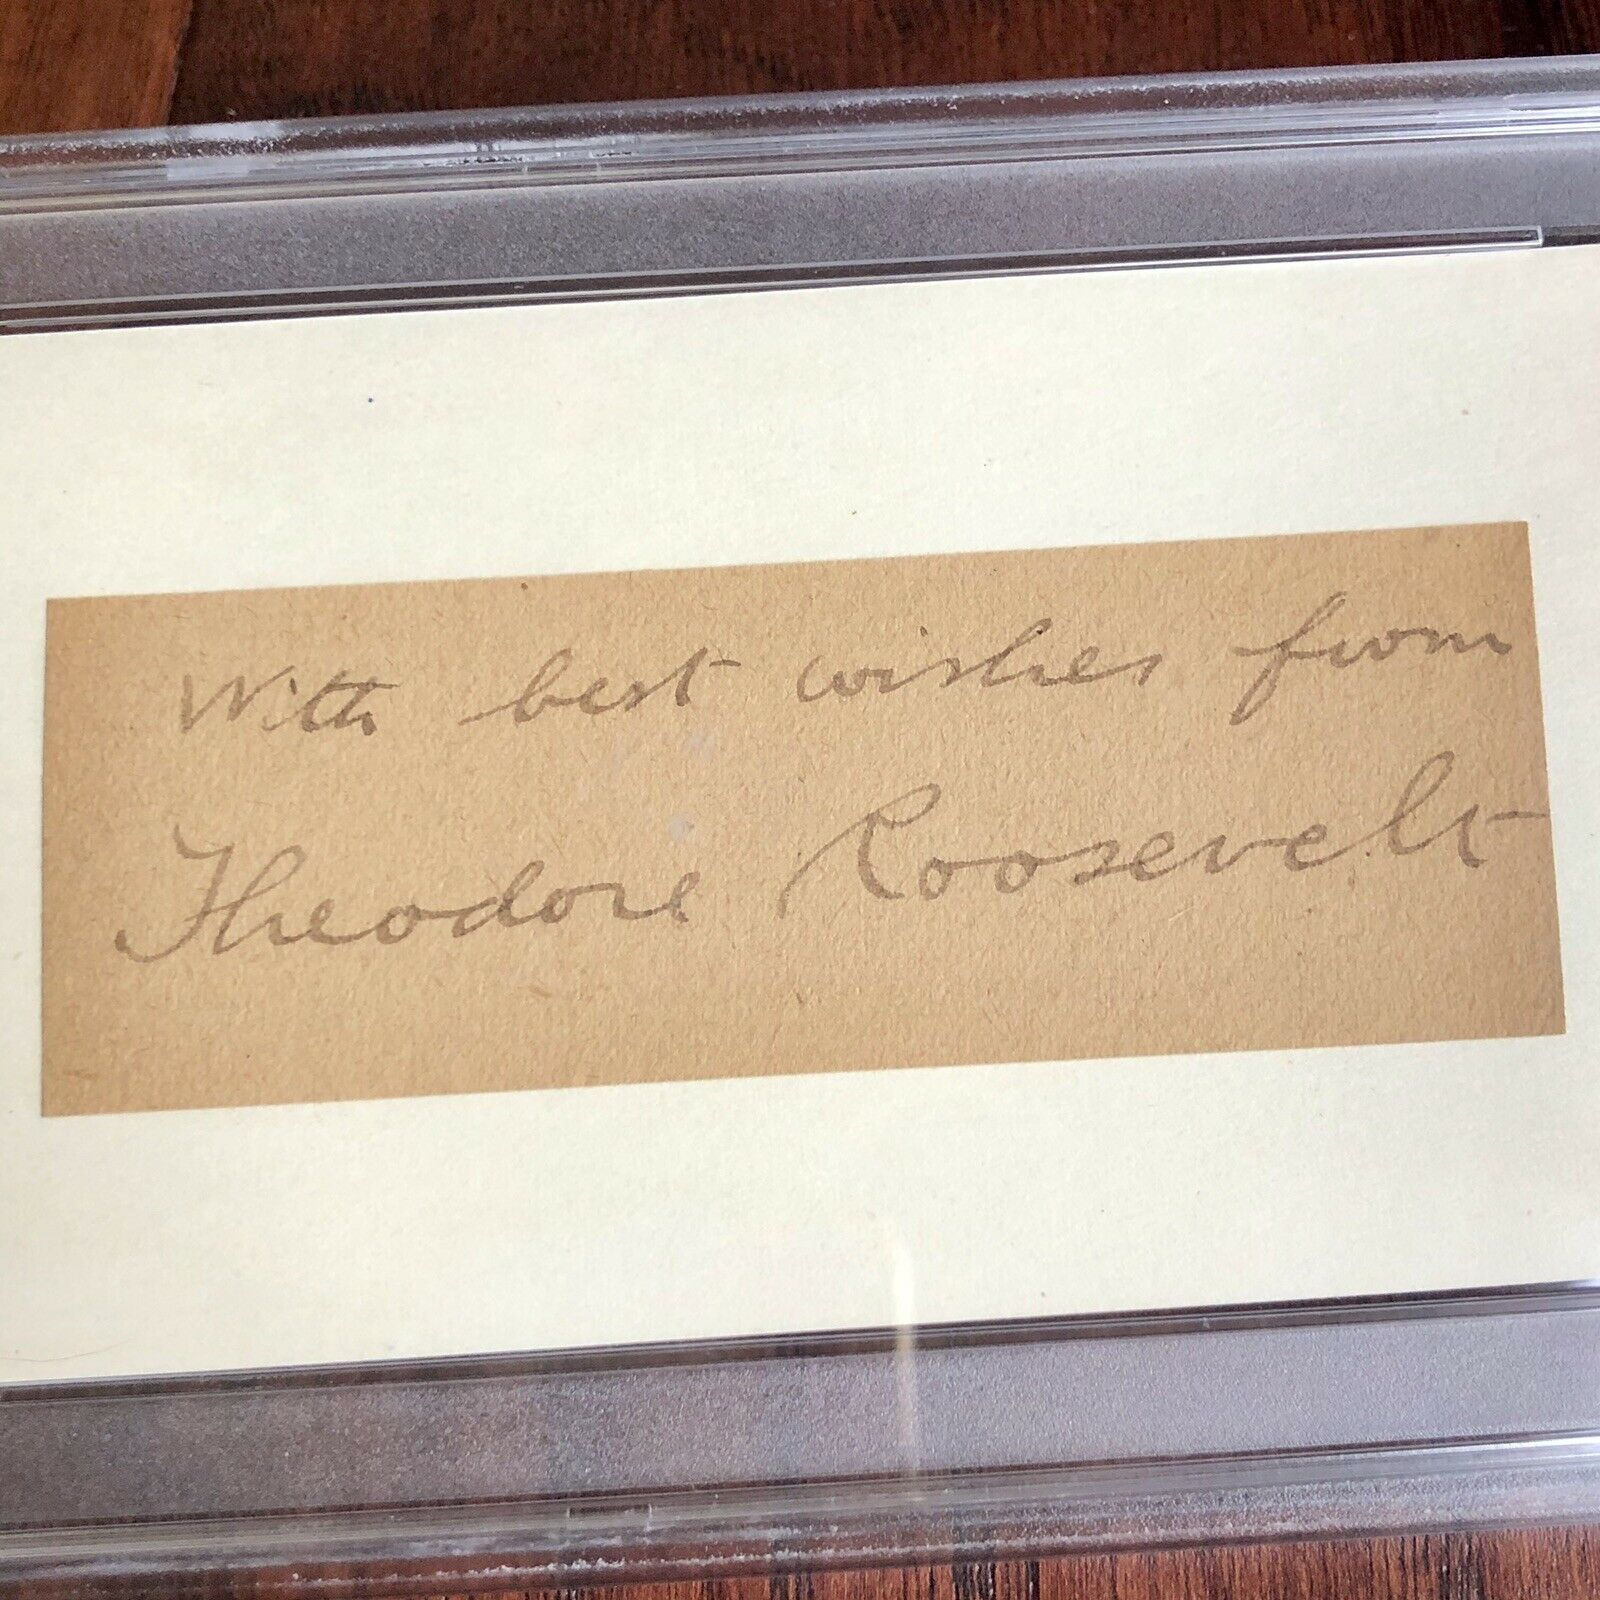 With best wishes from
Theodore Roosevelt